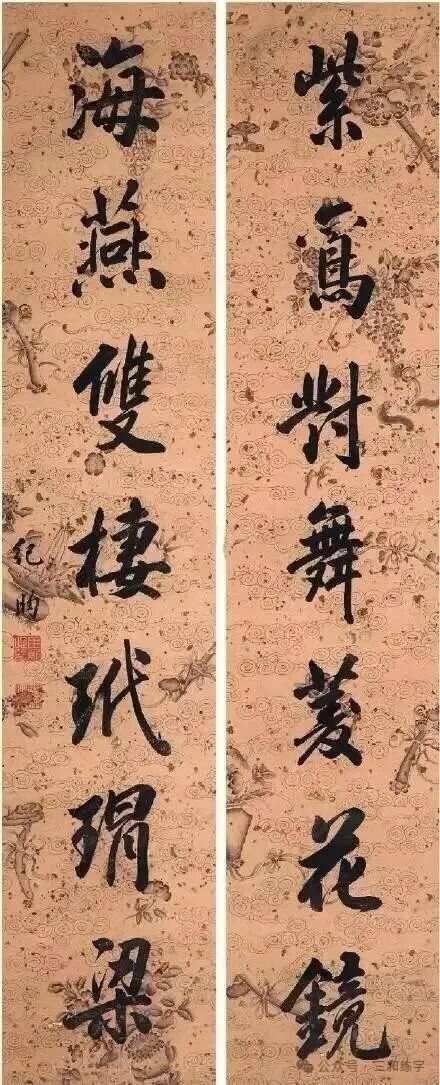 紫鸞對舞菱花鏡
海燕雙棲玳瑁梁
紀昀
公众号 · 三和练字